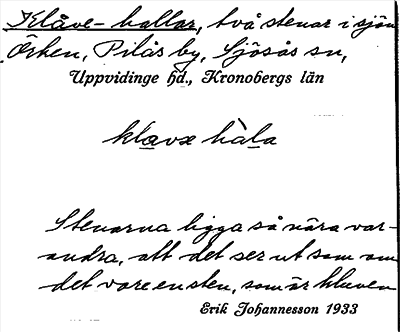 Klåve-hallar, två stenar i sjön
Örken, Pilås by, Sjösås sn,
Uppvidinge hd., Kronobergs län
klavæ hàla
Stenarna ligga så nära var-
andra, att det ser ut som om
det vore en sten, som är kluven
Erik Johannesson 1933